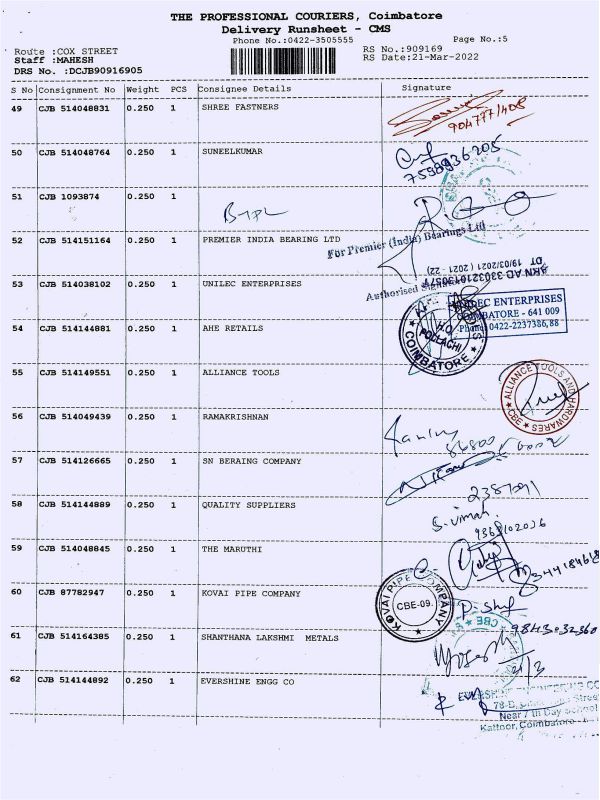 THE PROFESSIONAL COURIERS, Coimbatore
Delivery Runsheet - CMS
Phone No.:0422-3505555
Page No.:5
Route :COX STREET
RS No.:909169
Staff :MAHESH
RS Date:21-Mar-2022
DRS No. :DCJB90916905
S No Consignment No Weight PCS Consignee Details Signature
49 CJB 514048831 0.250 1 SHREE FASTNERS
50 CJB 514048764 0.250 1 SUNEELKUMAR
7598936205
51 CJB 1093874 0.250 1
52 CJB 514151164 0.250 1 PREMIER INDIA BEARING LTD
For Premier (India) Bearings Ltd
Authorised
DT 19/03/2021 (2021 - 22)
53 CJB 514038102 0.250 1 UNILEC ENTERPRISES
UNILEC ENTERPRISES
COIMBATORE - 641 009
Phone: 0422-2237386,88
54 CJB 514144881 0.250 1 AHE RETAILS
H.O.
POLLACHI
COIMBATORE
55 CJB 514149551 0.250 1 ALLIANCE TOOLS
ALLIANCE TOOLS AND HARDWARES
CBE
56 CJB 514049439 0.250 1 RAMAKRISHNAN
57 CJB 514126665 0.250 1 SN BERAING COMPANY
58 CJB 514144889 0.250 1 QUALITY SUPPLIERS
S. vimah
59 CJB 514048845 0.250 1 THE MARUTHI
60 CJB 87782947 0.250 1 KOVAI PIPE COMPANY
KOVAI PIPE COMPANY
CBE-09.
CBE
61 CJB 514164385 0.250 1 SHANTHANA LAKSHMI METALS
21/3
62 CJB 514144892 0.250 1 EVERSHINE ENGG CO
Near 7 th Day School
Kattoor, Coimbatore